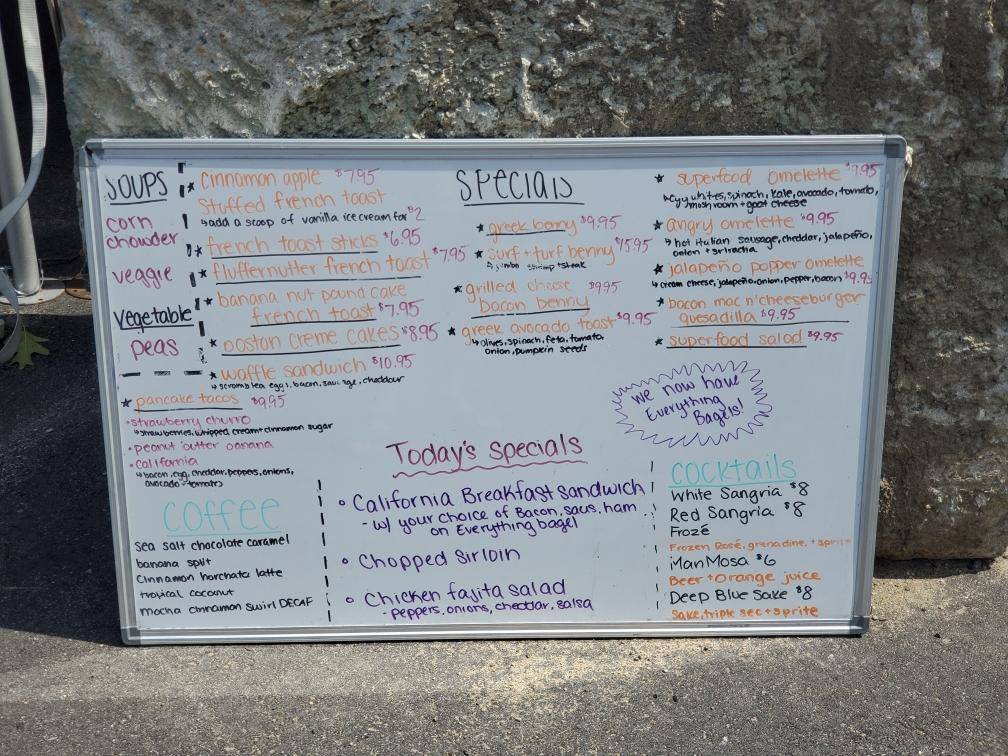 SOUPS
corn
chowder
veggie
vegetable
peas
★ cinnamon apple $7.95
Stuffed french toast
↳ add a scoop of vanilla ice cream for $2
★ french toast sticks $6.95
★ fluffernutter french toast $7.95
★ banana nut pound cake
french toast $7.95
★ boston creme cakes $8.95
★ waffle sandwich $10.95
↳ scrambled eggs, bacon, sausage, cheddar
★ pancake tacos $9.95
• strawberry churro
↳ strawberries, whipped cream + cinnamon sugar
• peanut butter banana
• california
↳ bacon, egg, cheddar, peppers, onions,
avocado + tomato
SPECIALS
★ greek benny $9.95
★ surf + turf benny $15.95
↳ jumbo shrimp + steak
★ grilled cheese $9.95
bacon benny
★ greek avocado toast $9.95
↳ olives, spinach, feta, tomato,
onion, pumpkin seeds
★ superfood omelette $9.95
↳ egg whites, spinach, kale, avocado, tomato,
mushroom + goat cheese
★ angry omelette $9.95
↳ hot italian sausage, cheddar, jalapeño,
onion + sriracha
★ jalapeño popper omelette
↳ cream cheese, jalapeño, onion, pepper, bacon $9.95
★ bacon mac n'cheeseburger
quesadilla $9.95
★ superfood salad $9.95
we now have
Everything
Bagels!
Today's Specials
• California Breakfast Sandwich
- w/ your choice of Bacon, saus, ham
on Everything bagel
• Chopped Sirloin
• Chicken fajita salad
- peppers, onions, cheddar, salsa
coffee
Sea salt chocolate caramel
banana split
Cinnamon horchata latte
tropical coconut
mocha cinnamon swirl DECAF
COCKTAILS
White Sangria $8
Red Sangria $8
Frozé
Frozen Rosé, grenadine, + sprite
ManMosa $6
Beer + Orange juice
Deep Blue Sake $8
Sake, triple sec + sprite